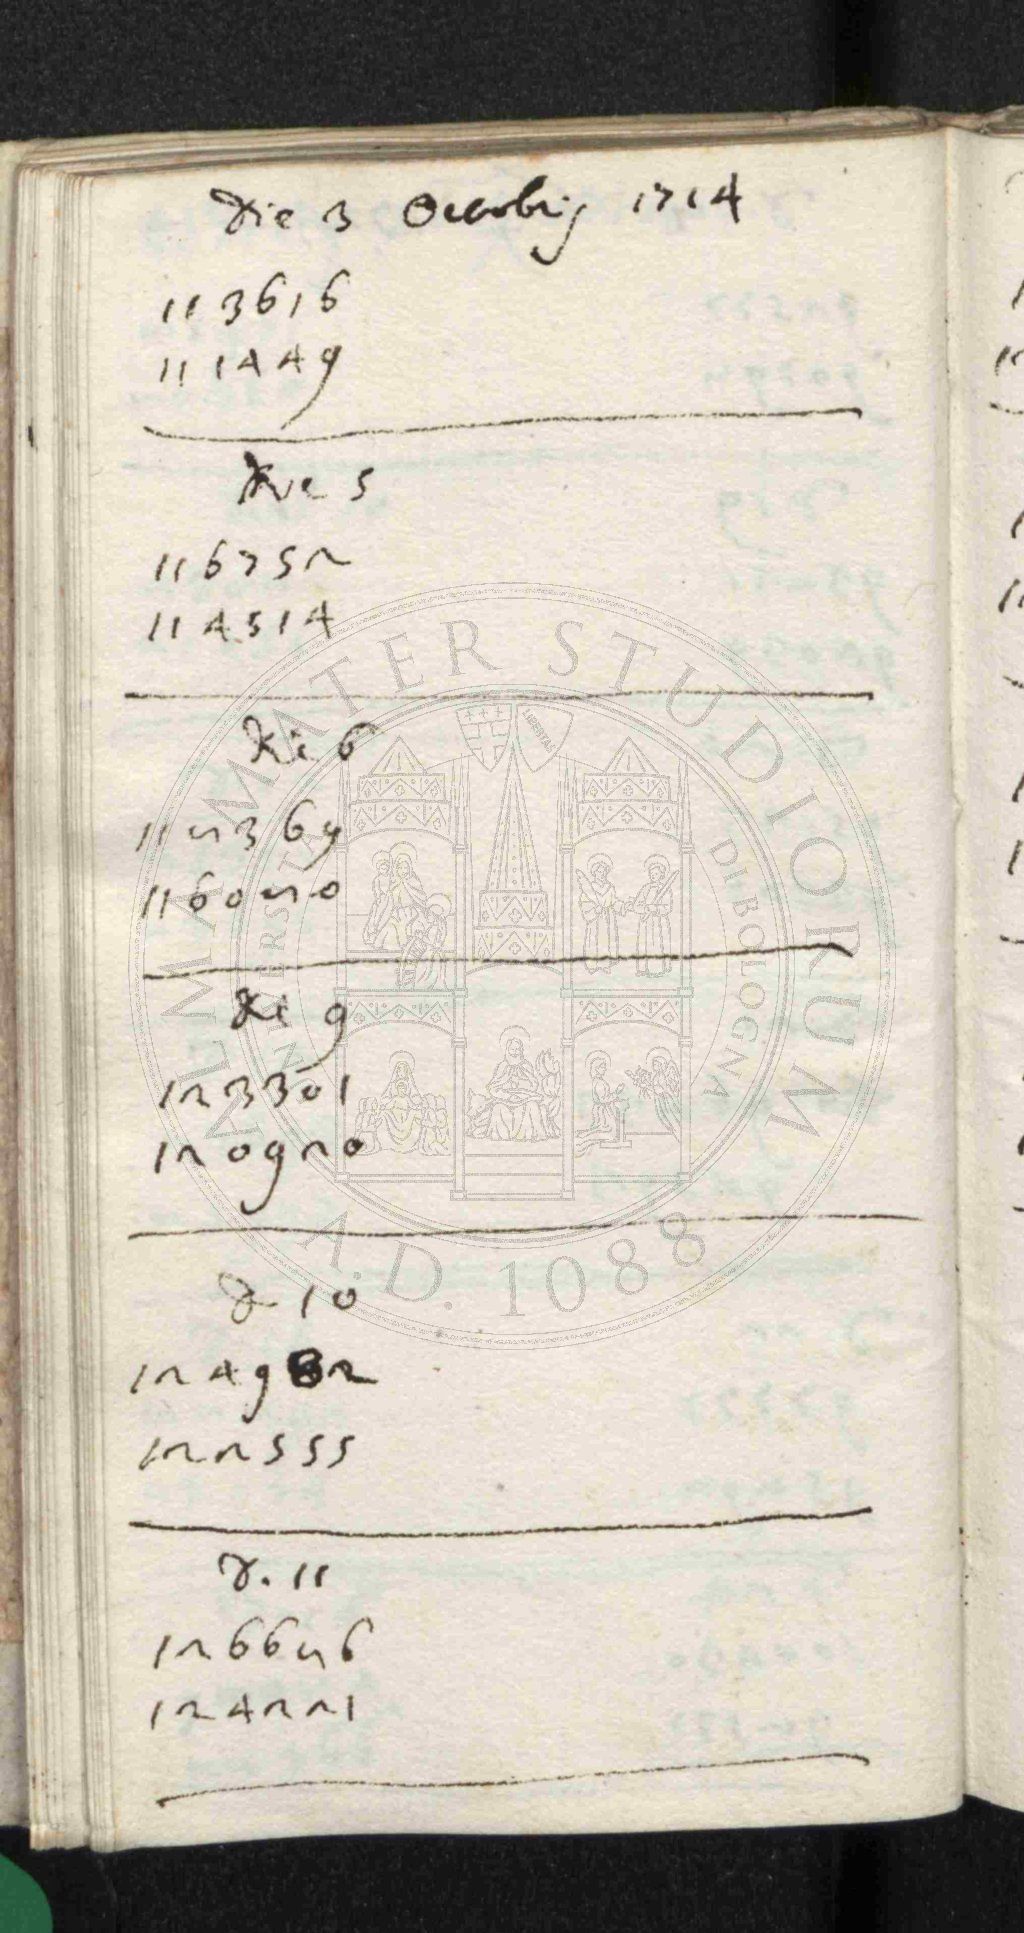 Die 3 Octobris 1714
113616
111449
Die 5
116752
114514
Die 6
118369
116080
Die 9
123301
120920
D 10
124982
122555
D. 11
126686
124221
ALMA MATER STUDIORUM
UNIVERSITÀ DI BOLOGNA
LIBERTAS
A.D. 1088